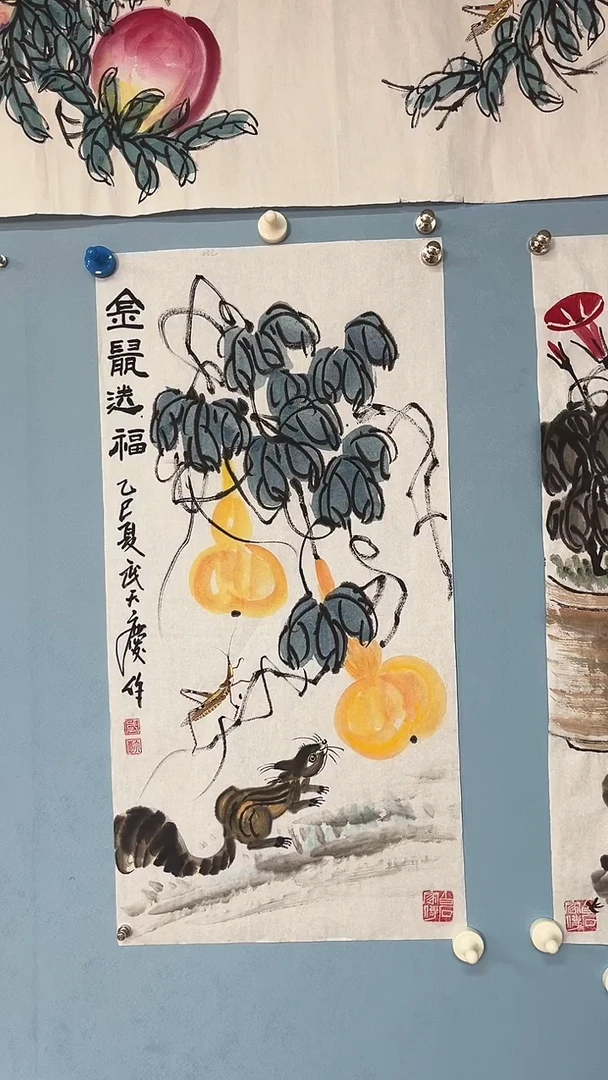 金鼠送福
乙巳夏武天庆作